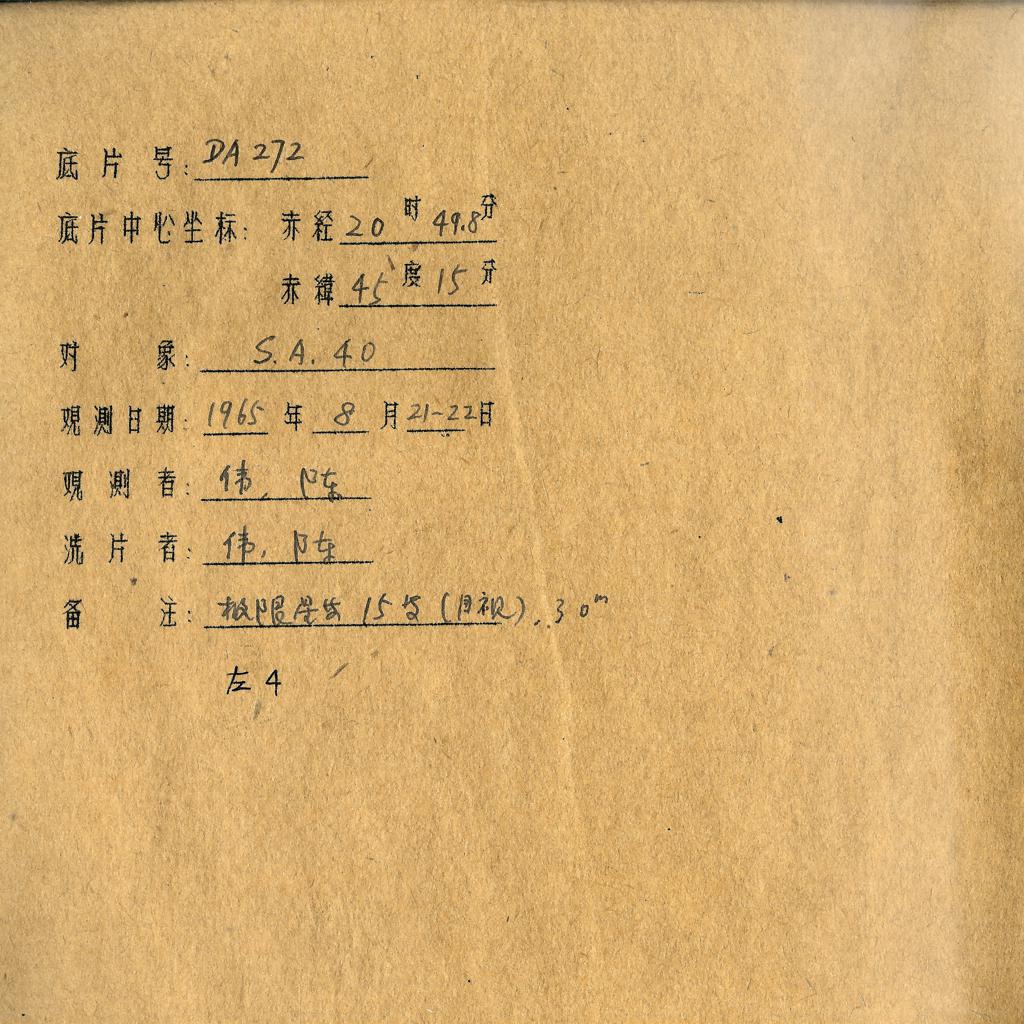 底片号: DA272
底片中心坐标: 赤经 20时 49.8分
赤緯 45度 15分
对象: S.A.40
观測日期: 1965年 8月 21-22日
观測者: 伟, 陈
洗片者: 伟, 陈
备注: 极限星等 15等 (目视), 30ᵐ
左4